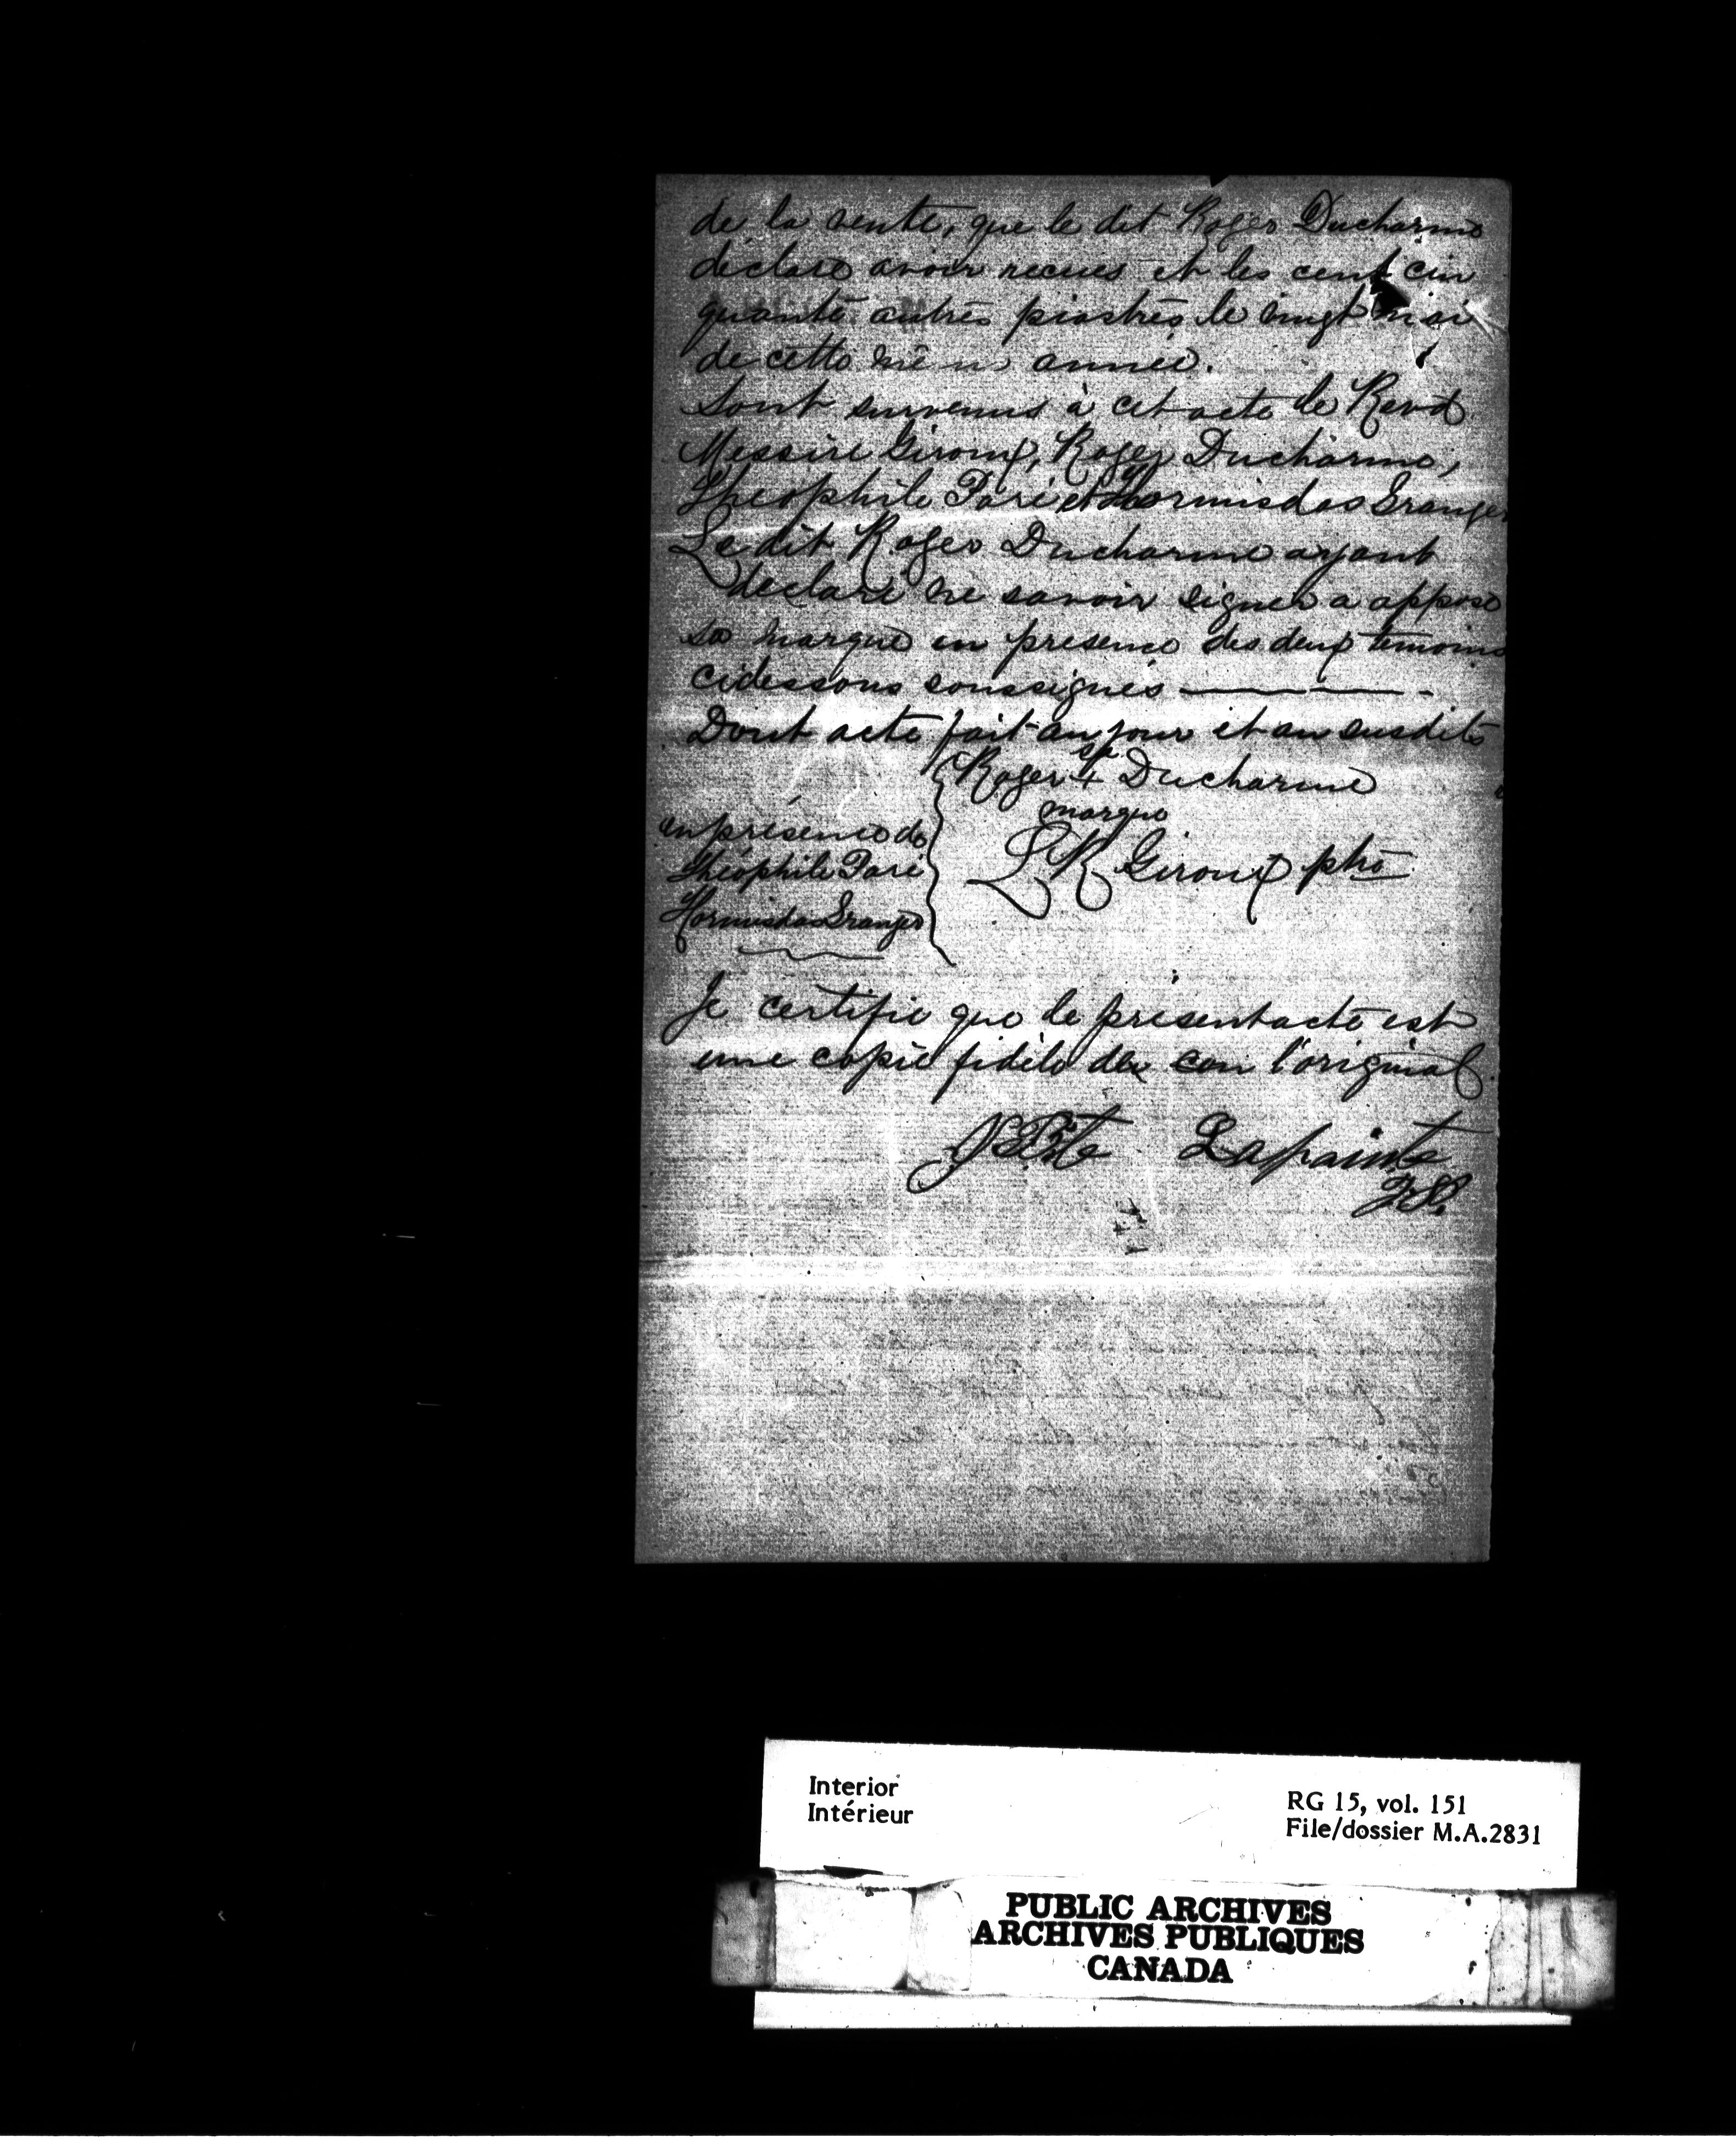 de la vente, que le dit Roger Ducharme
déclare avoir recues et les cent cin
quante autres piastres le vingt mai
de cette mê m année.
Sont survenus à cet acte le Revd
Messire Giroux, Roger Ducharme,
Theophile Paré et Hormisdas Granger
Le dit Roger Ducharme ayant
declaré ne savoir signer a apposé
sa marque en presence des deux temoins
cidessous soussignés
Dont acte fait au jour et an susdits
Roger sa + Ducharme
marque
en présence de
Théophile Paré
Hormisdas Granger
L. R Giroux ptre
Je certifie que le présent acte est
une copie fidèle de l'original
Lapointe
Interior
Intérieur
RG 15, vol. 151
File/dossier M.A.2831
PUBLIC ARCHIVES
ARCHIVES PUBLIQUES
CANADA